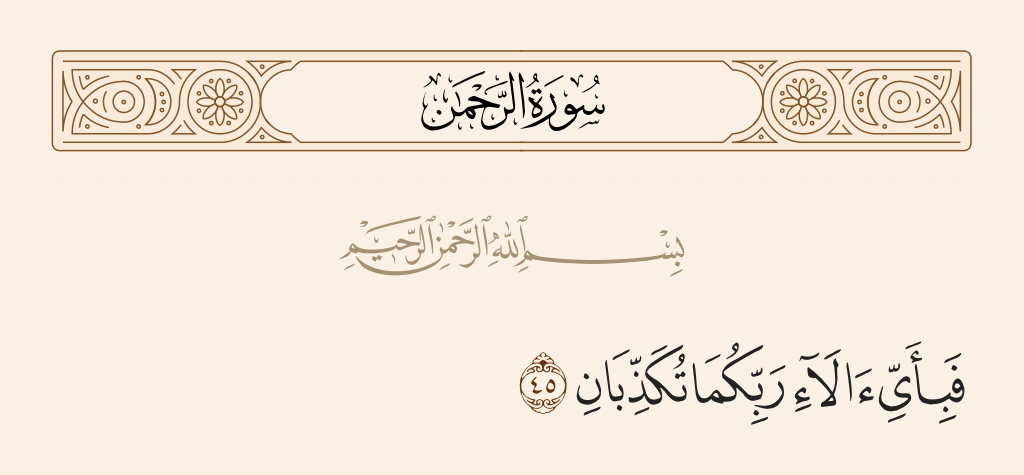 سُورَةُ الرَّحْمَٰن
بِسْمِ ٱللَّهِ ٱلرَّحْمَٰنِ ٱلرَّحِيمِ
فَبِأَيِّ ءَالَآءِ رَبِّكُمَا تُكَذِّبَانِ ٤٥